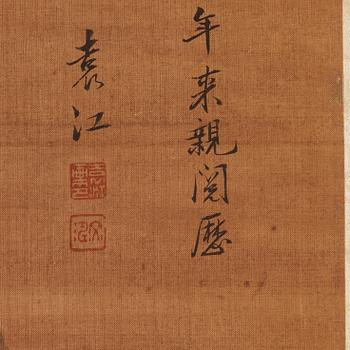 年来親閲歷
袁江